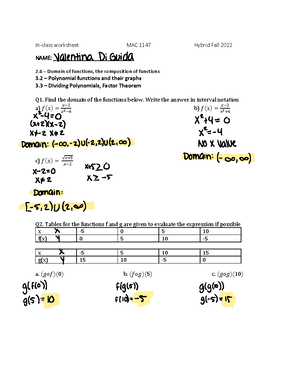 In-class worksheet MAC 1147 Hybrid Fall 2022
NAME: Valentina Di Guida
2.6 – Domain of functions, the composition of functions
3.2 – Polynomial functions and their graphs
3.3 – Dividing Polynomials, Factor Theorem
Q1. Find the domain of the functions below. Write the answer in interval notation
a) f(x) = (x-2)/(x²-4) b) f(x) = (x-2)/(x²+4)
x²-4=0 x²+4=0
(x+2)(x-2) x²=-4
x≠-2 x≠2 No x value
Domain: (-∞,-2)U(-2,2)U(2,∞) Domain: (-∞,∞)
c) f(x) = √(x+5)/(x-2)
x-2=0 x+5≥0
x≠2 x≥-5
Domain:
[-5,2)U(2,∞)
Q2. Tables for the functions f and g are given to evaluate the expression if possible
x X -5 0 5 10
f(x) Y 0 5 10 -5
x X -5 5 10 0
g(x) Y 15 10 -5 0
a. (gof)(0) b. (fog)(5) c. (gog)(10)
g(f(0)) f(g(5)) g(g(0))
g(5)=10 f(10)=-5 g(-5)=15